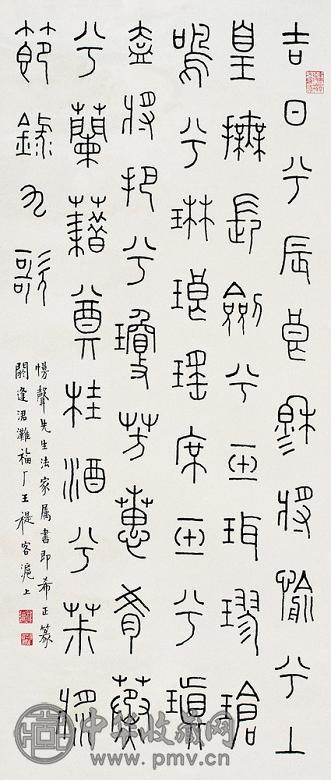 吉日兮辰良穆將愉兮上
皇撫長劍兮玉珥璆瑲
鳴兮琳琅瑤席玉兮瑱
盍將把兮瓊芳蕙肴蒸
兮蘭藉奠桂酒兮茮漿
節錄九歌
聲先生法家属書即希正篆
閼逢涒灘福厂王禔客滬上
中华收藏网
www.pmv.cn